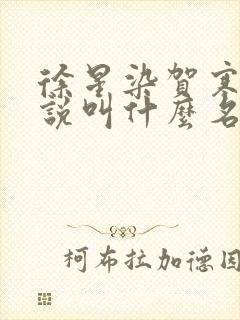 徐星染賀寒
說叫什麼名
柯布拉加德因